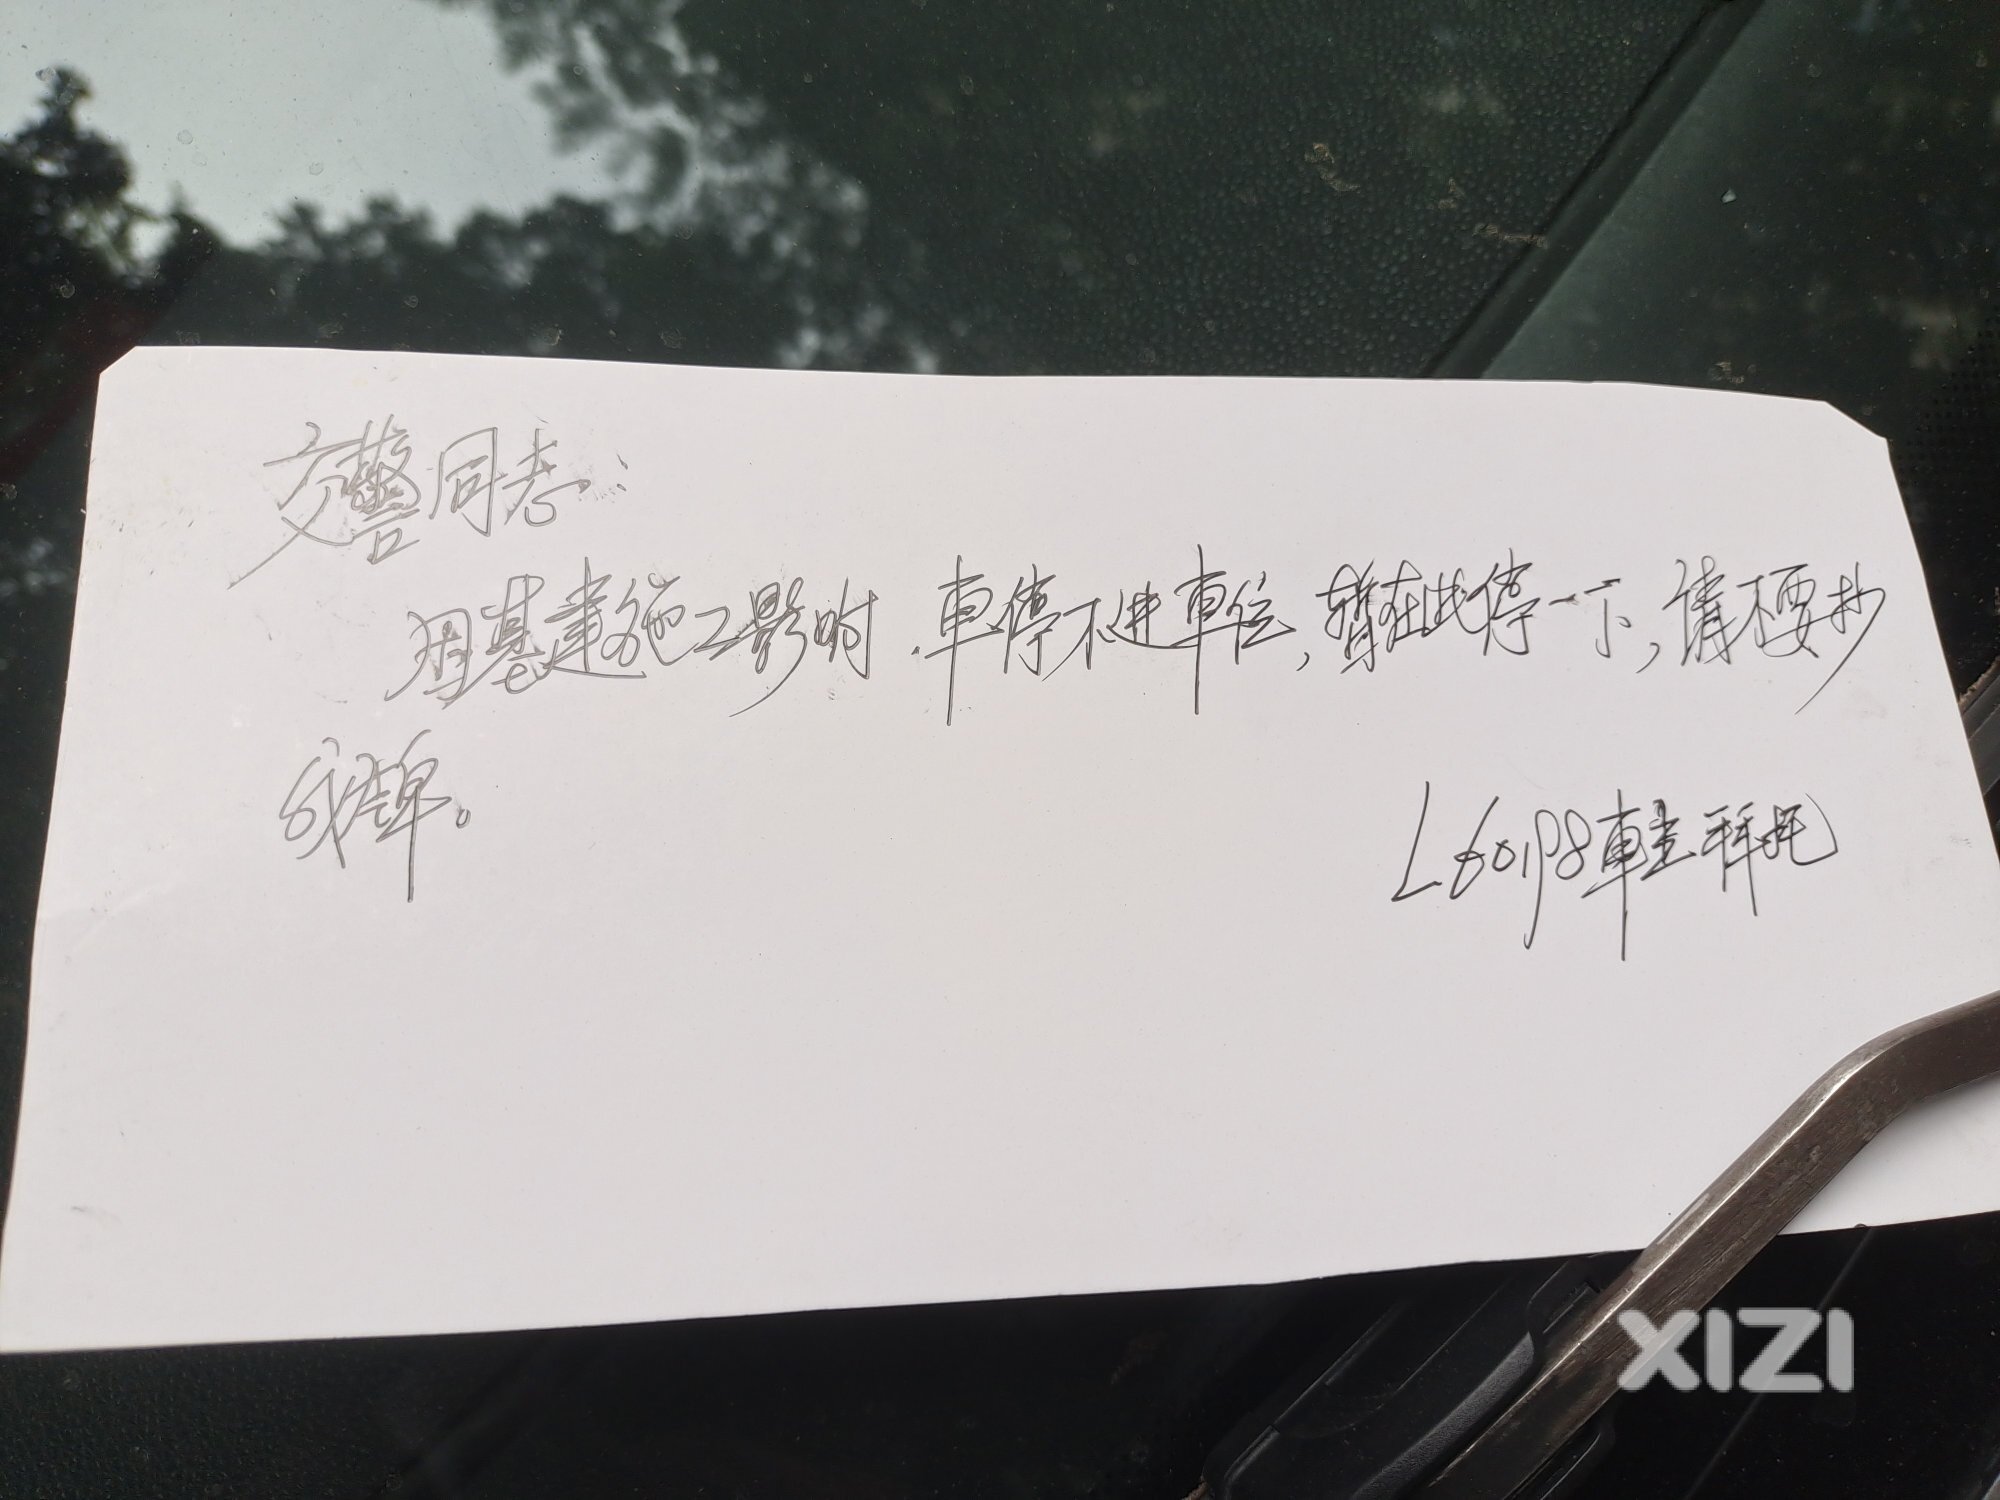 交警同志:
因基建施工影响.車停不進車位,暫在此停一下,请不要抄
我牌。
L60198車主拜托
XIZI